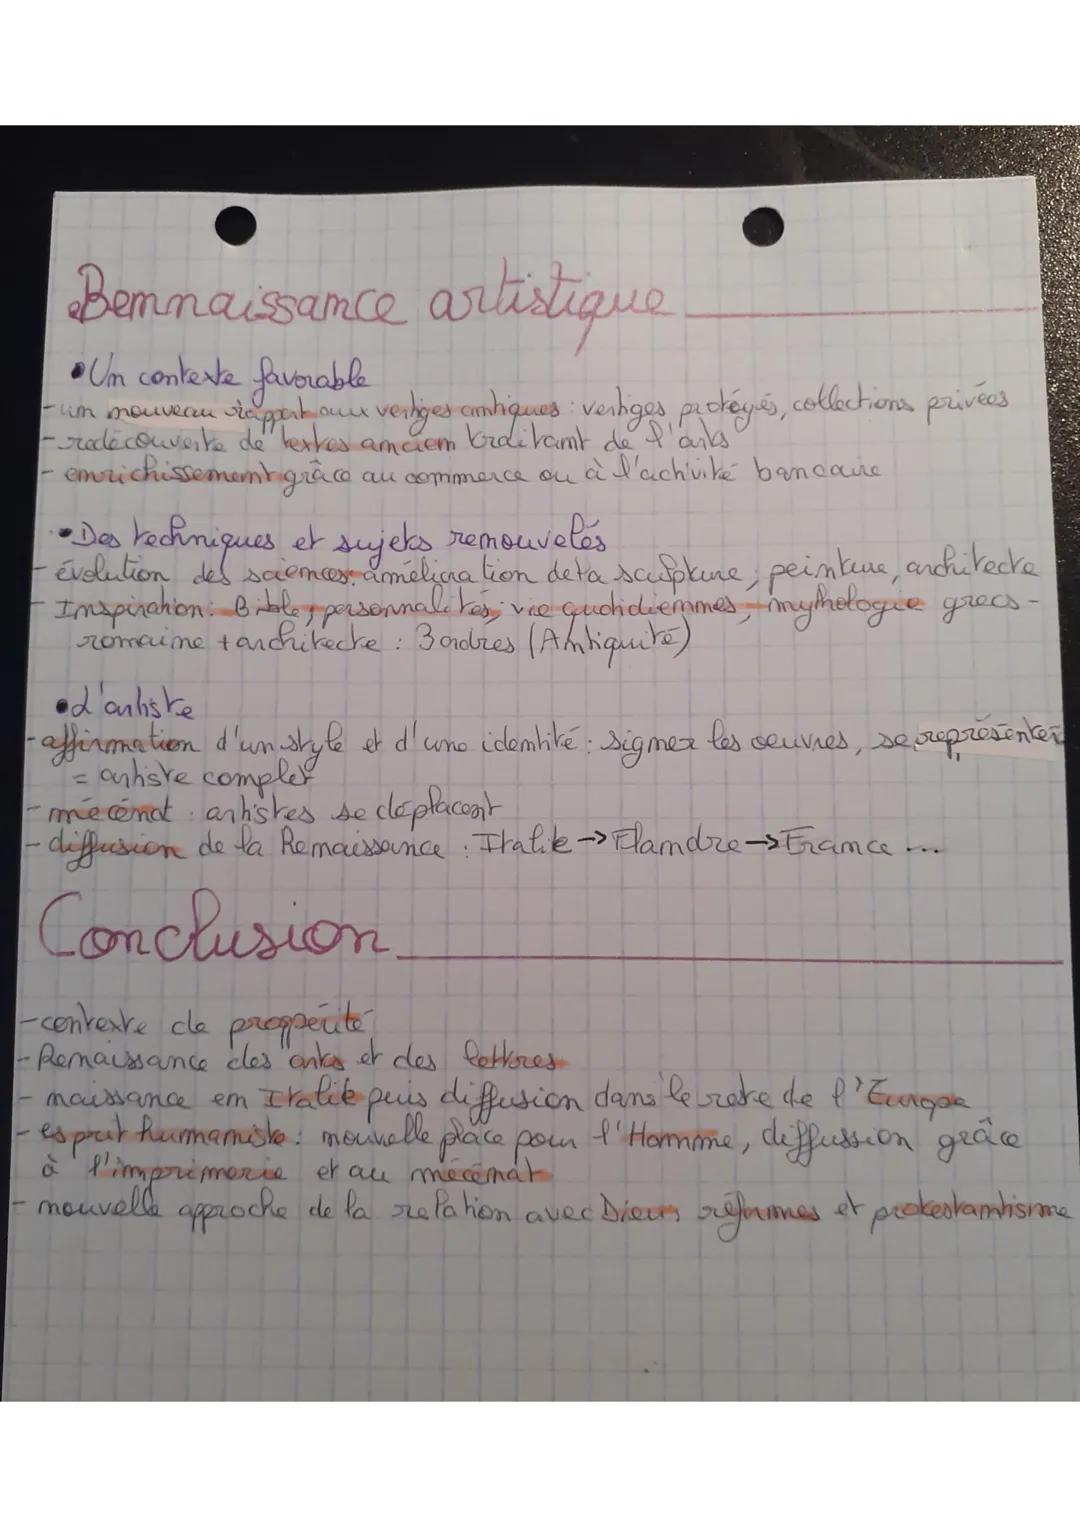 Rennaissance artistique
• Un contexte favorable
- un nouveau rapport aux vertiges antiques : vertiges protégés, collections privées
- redécouverte de textes anciem traitant de l'arts
- enrichissement grâce au commerce ou à l'activité bancaire
• Des techniques et sujets renouvelés
- évolution des sciences: amélioration de la sculpture, peinture, architecte
- Inspiration: Bible, personnalités, vie quotidiennes, mythologie grecs-
romaine + architecte : 3 ordres (Antiquité)
• L'artiste
- affirmation d'un style et d'une identité : signer les oeuvres, se représenter
= artiste complet
- mécénat : artistes se déplacent
- diffusion de la Renaissance : Italie → Flandre → France ...
Conclusion
- contexte de prospérité
- Renaissance des arts et des lettres
- naissance en Italie puis diffusion dans le reste de l'Europe
- esprit humaniste : nouvelle place pour l'Homme, diffussion grâce
à l'imprimerie et au mécénat
- nouvelle approche de la relation avec Dieu, réformes et protestantisme